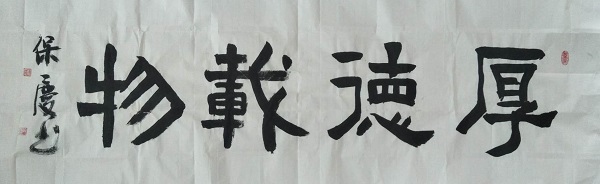 厚德載物
保慶书